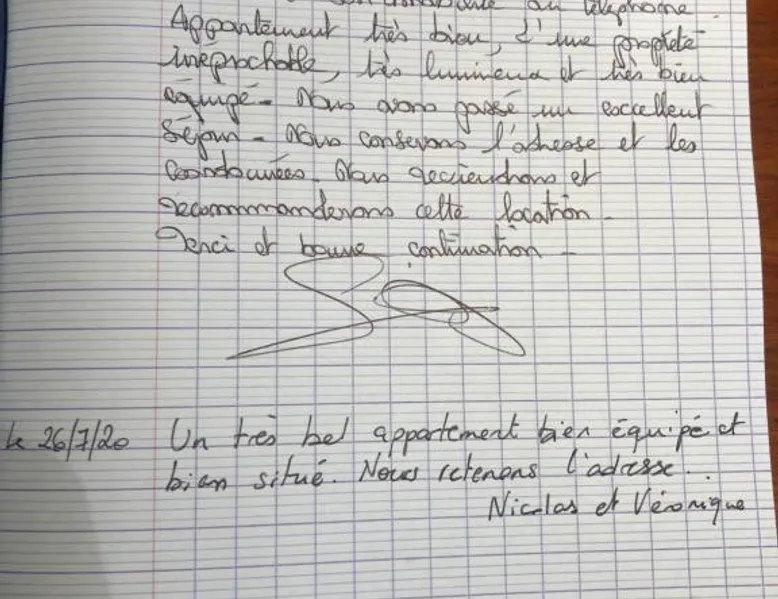 au téléphone.
Appartement très bien, d'une propreté
irréprochable, très lumineux et très bien
équipé - Nous avons passé un excellent
Séjour - Nous conservons l'adresse et les
Coordonnées. Nous reviendrons et
recommmanderons cette location -
Merci et bonne continuation -
le 26/7/20 Un très bel appartement bien équipé et
bien situé. Nous retenons l'adresse...
Nicolas et Véronique